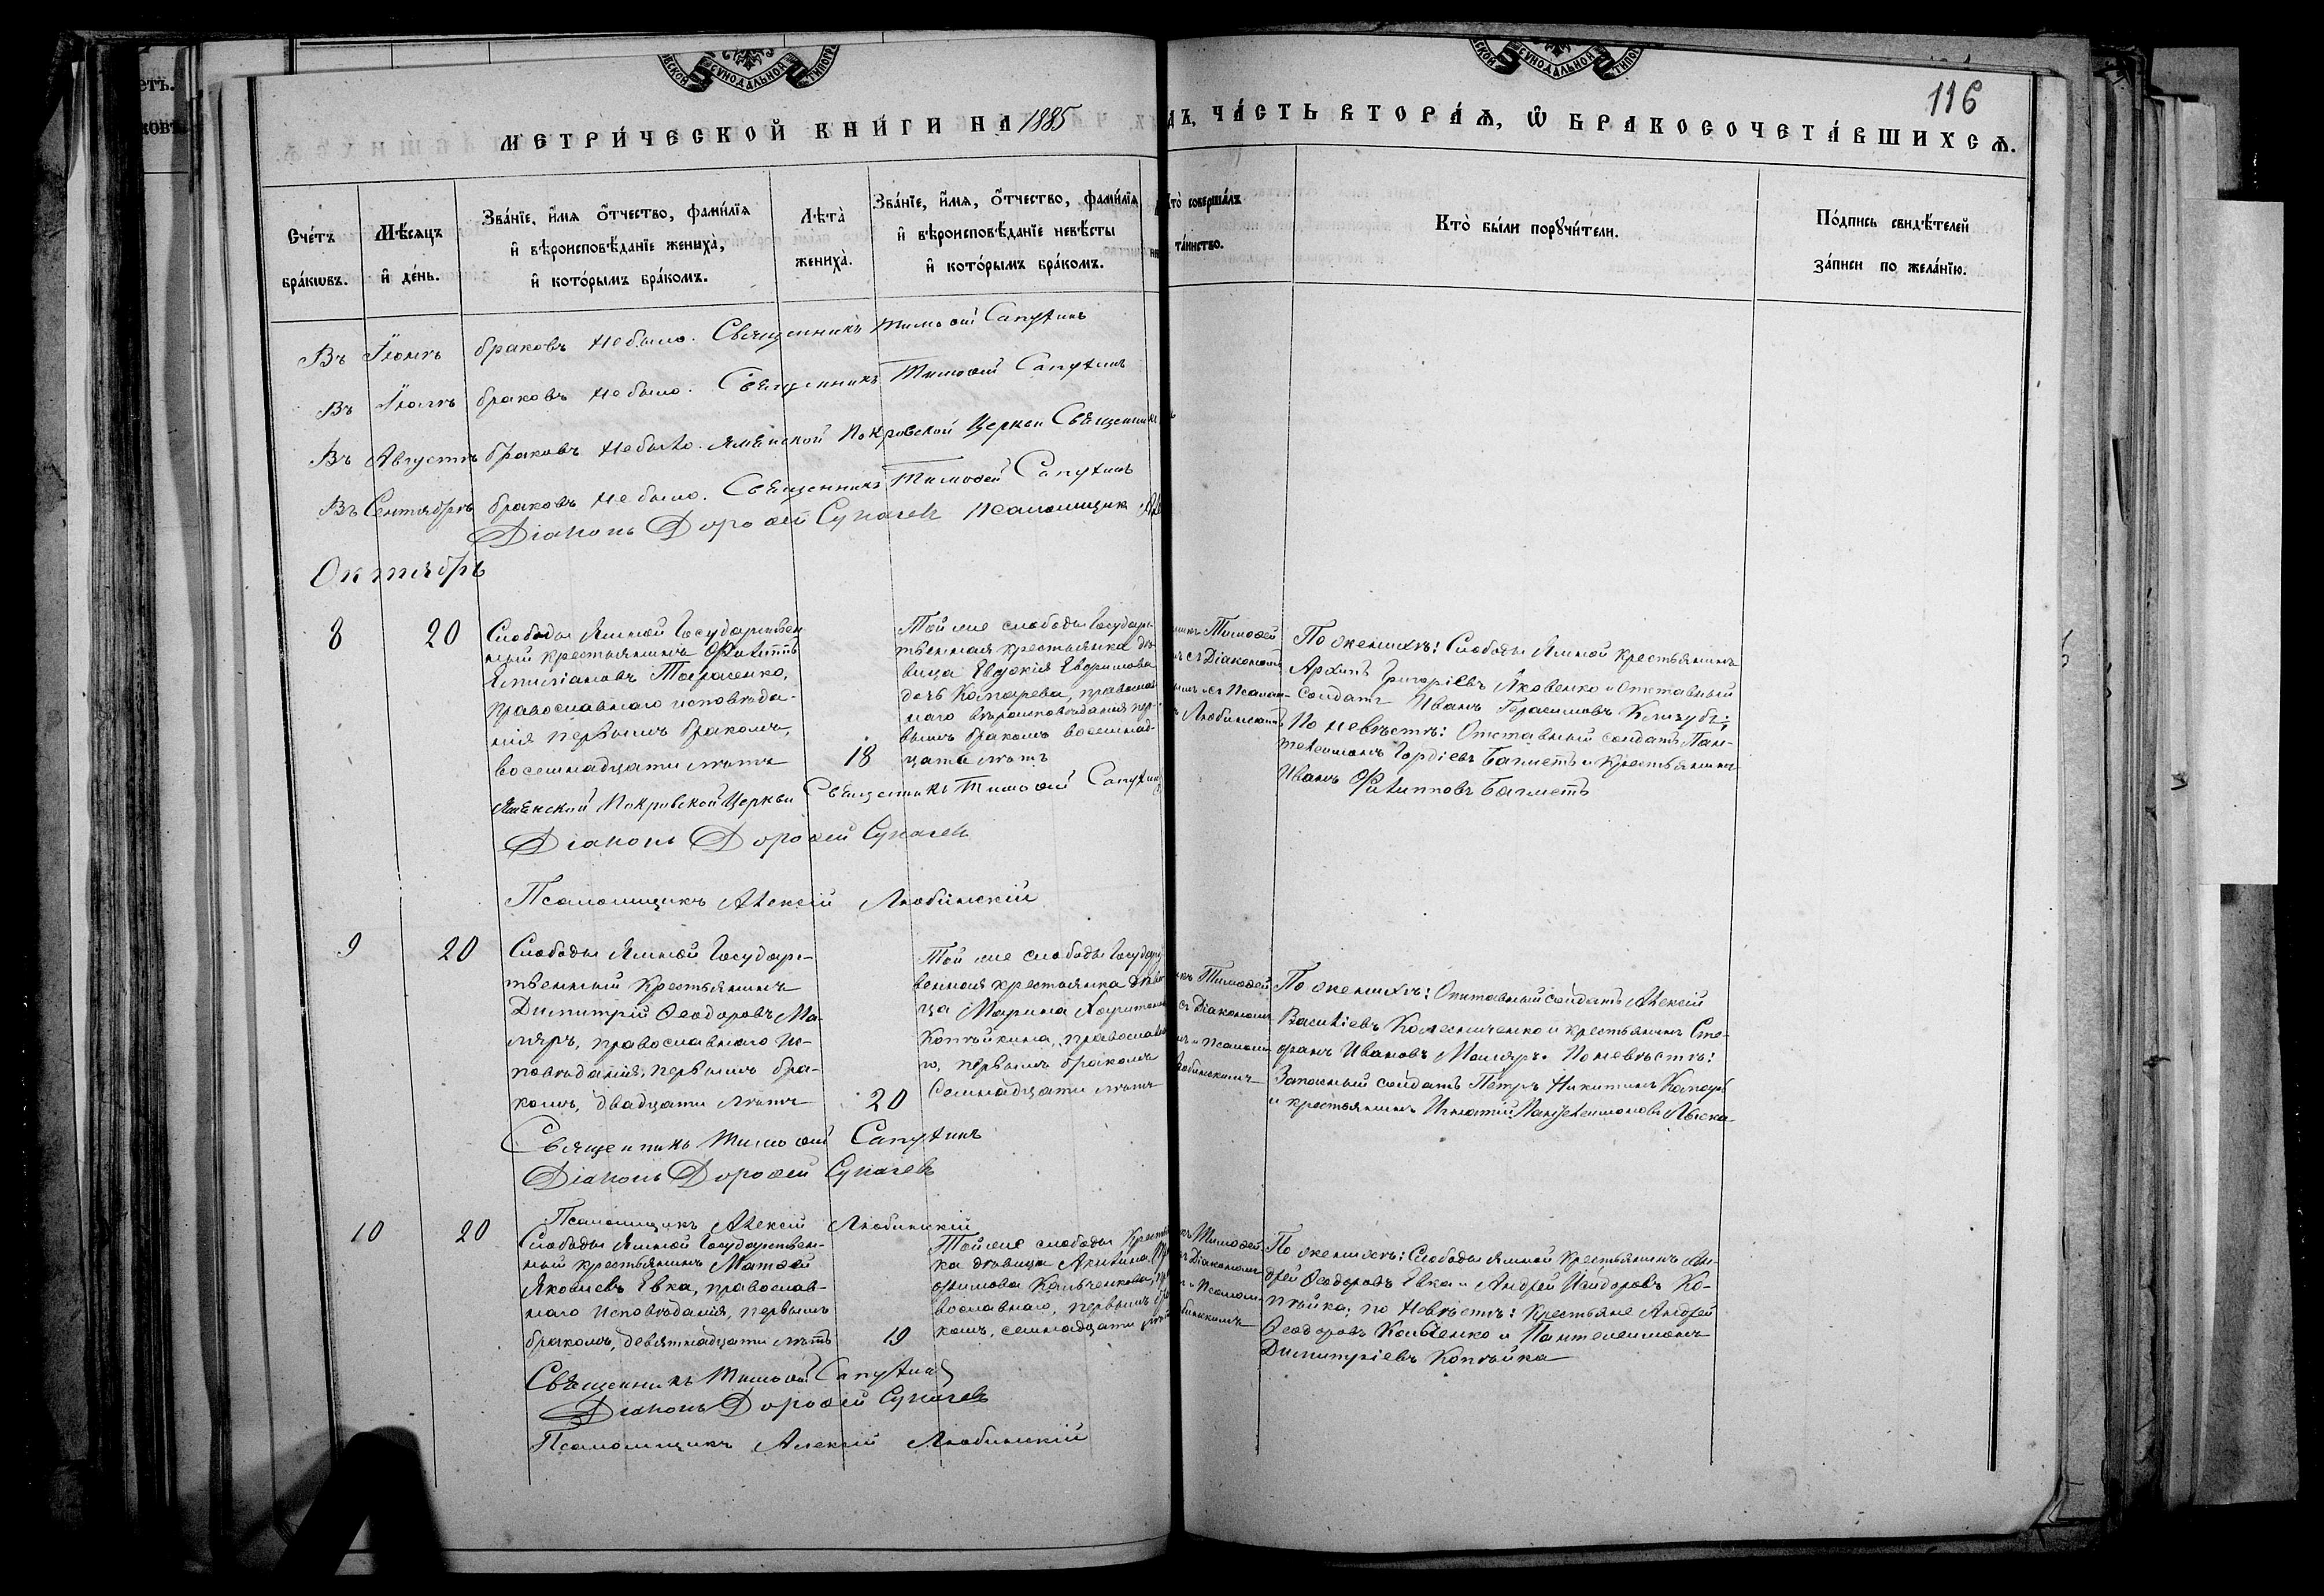 116
МЕТРИ́ЧЕСКОЙ КНИ́ГИ НА 1885
ДЪ, ЧА́СТЬ ВТОРА́Ѧ, Ѽ БРАКОСОЧЕТА́ВШИХСѦ.
Сче́тъ бра́кѡвъ.
Мѣ́сѧцъ и҆ де́нь.
Зва́нїе, и҆́мѧ ѻ҆́тчество, фами́лїѧ
и҆ вѣроисповѣ́данїе жениха̀,
и҆ кото́рымъ бра́комъ.
Лѣта̀ жениха̀.
Зва́нїе, и҆́мѧ, ѻ҆́тчество, фами́лїѧ
и҆ вѣроисповѣ́данїе невѣ́сты
и҆ кото́рымъ бра́комъ.
то̀ соверша́лъ
та́инство.
Кто̀ бы́ли порꙋчи́тели.
По́дпись свидѣ́телей
за́писи по жела́нїю.
Въ Іюнѣ браковъ не было. Священникъ Тимоѳей Сапухинъ
Въ Іюлѣ браковъ не было. Священникъ Тимоѳей Сапухинъ
Въ Августѣ браковъ не было. Ямнской Покровской Церкви Священникъ
Въ Сентябрѣ браковъ не было. Священникъ Тимоѳей Сапухинъ
Діаконъ Дороѳей Сукачевъ Псаломщик
Октябрь
8
20
Слободы Ямной Государствен
ный крестьянинъ Филиппъ
Емиліановъ Тарасенко,
православнаго исповѣда-
нія первымъ бракомъ,
восемнадцати лѣтъ
18
Той же слободы Государс-
твенная крестьянка дѣ-
вица Евдокія Евфимова
дочь Косарева, православ
наго вѣроисповѣданія пер-
вымъ бракомъ восемнад-
цать лѣтъ
Тимоѳей
съ Діакономъ
Псалом-
Любинскимъ
По женихѣ: Слободы Ямной крестьянинъ
Архипъ Григоріевъ Яковенко и Отставный
солдатъ Иванъ Герасимовъ
По невѣстѣ: Отставный солдатъ Пан-
телеимонъ Гордіевъ Багметъ и Крестьянинъ
Иванъ Филипповъ Багметъ
Ямнской Покровской Церкви Священникъ Тимоѳей Сапухинъ
Діаконъ Дороѳей Сукачевъ
Псаломщикъ Алексій Любинскій
9
20
Слободы Ямной Государс-
твенный Крестьянинъ
Димитрій Ѳеодоровъ Ма-
ляръ, православнаго ис-
повѣданія, первымъ бра-
комъ, двадцати лѣтъ
20
Той же слободы Государст
венная крестьянка дѣви
ца Марина Харитонова
Копѣйкина, православна
го, первымъ бракомъ
Семнадцати лѣтъ
Тимоѳей
съ Діакономъ
и Псалом
По женихѣ: Отставный солдатъ Алексій
Василіевъ Колесниченко и крестьянинъ Сте-
фанъ Ивановъ Маляръ. По невѣстѣ:
Запасный солдатъ Петръ Никитинъ
и крестьянинъ Игнатій Пантелеимоновъ Лыска
Священникъ Тимоѳей Сапухинъ
Діаконъ Дороѳей Сукачевъ
Псаломщикъ Алексій Любинскій
10
20
Слободы Ямной Государствен-
ный крестьянинъ Матѳей
Яковлевъ Евка, православ-
наго исповѣданія, первымъ
бракомъ, девятнадцати лѣтъ
19
Той же слободы Крестьян
ка дѣвица Акилина
Кольченкова, пра
вославнаго, первымъ бра
комъ, семнадцати лѣтъ
Тимоѳей
Діакономъ
и Псалом-
По женихѣ: Слободы Ямной Крестьянинъ Ан-
дрей Ѳеодоровъ Евка и Андрей Исидоровъ Ко-
пѣйка; по Невѣстѣ: Крестьяне Андрей
Ѳеодоровъ Кольченко и Пантелеимонъ
Димитріевъ Копѣйка
Священникъ Тимоѳей Сапухинъ
Діаконъ Дороѳей Сукачевъ
Псаломщикъ Алексій Любинскій